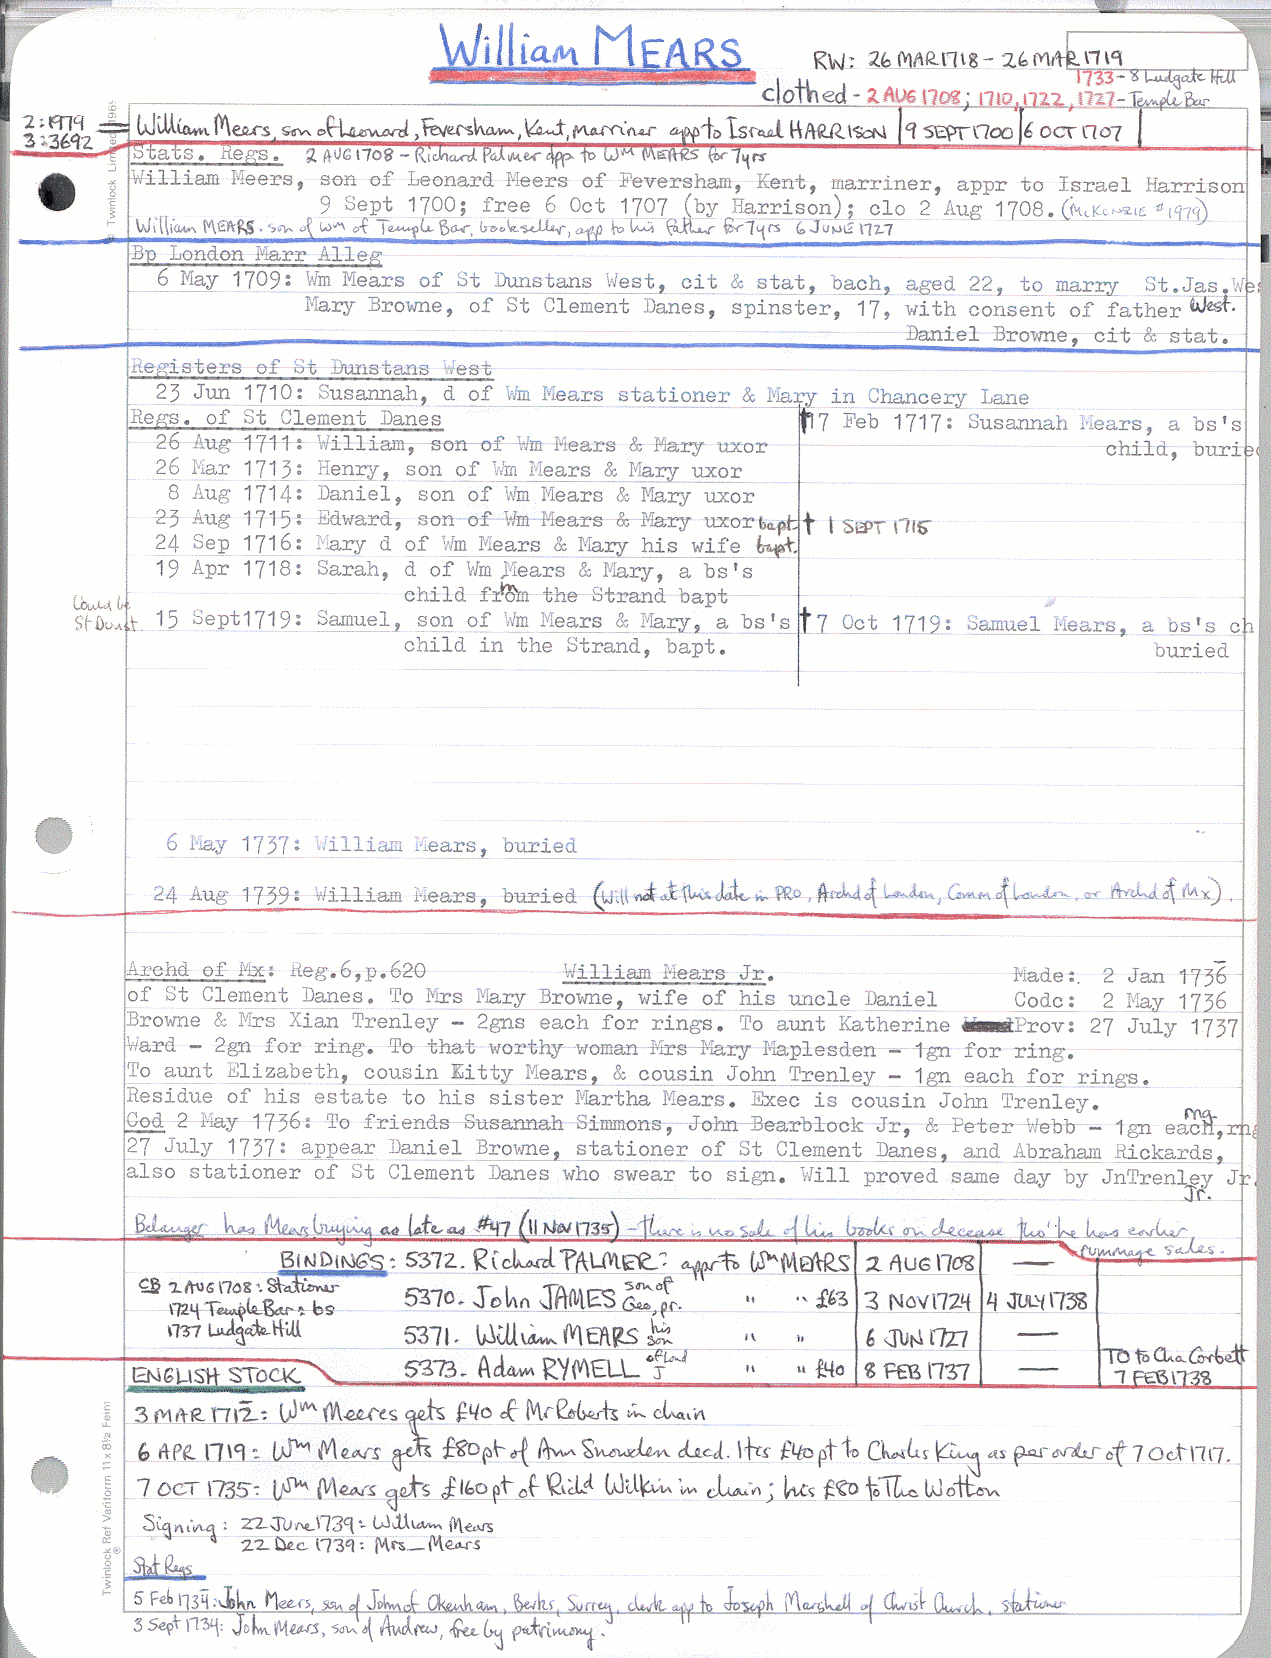 William MEARS
RW: 26 MAR 1718 - 26 MAR 1719
1733 - 8 Ludgate Hill
clothed - 2 AUG 1708; 1710, 1722, 1727 - Temple Bar
2:1979 = William Meers, son of Leonard, Feversham, Kent, Marriner app to Israel HARRISON | 9 SEPT 1700 | 6 OCT 1707
3:3692
Stats. Regs. 2 AUG 1708 - Richard Palmer app to Wm MEARS for 7yrs
William Meers, son of Leonard Meers of Feversham, Kent, marriner, appr to Israel Harrison
9 Sept 1700; free 6 Oct 1707 (by Harrison); clo 2 Aug 1708. (McKENZIE #1979)
William MEARS. son of Wm of Temple Bar, bookseller, app to his father for 7yrs 6 JUNE 1727
Bp London Marr Alleg
6 May 1709: Wm Mears of St Dunstans West, cit & stat, bach, aged 22, to marry St.Jas.Wes
Mary Browne, of St Clement Danes, spinster, 17, with consent of father West.
Daniel Browne, cit & stat.
Registers of St Dunstans West
23 Jun 1710: Susannah, d of Wm Mears stationer & Mary in Chancery Lane
Regs. of St Clement Danes †17 Feb 1717: Susannah Mears, a bs's
26 Aug 1711: William, son of Wm Mears & Mary uxor child, buried
26 Mar 1713: Henry, son of Wm Mears & Mary uxor
8 Aug 1714: Daniel, son of Wm Mears & Mary uxor
23 Aug 1715: Edward, son of Wm Mears & Mary uxor bapt. † 1 SEPT 1715
24 Sep 1716: Mary d of Wm Mears & Mary his wife bapt.
19 Apr 1718: Sarah, d of Wm Mears & Mary, a bs's
child from the Strand bapt
Could be
St Dunst 15 Sept1719: Samuel, son of Wm Mears & Mary, a bs's †7 Oct 1719: Samuel Mears, a bs's ch
child in the Strand, bapt. buried
6 May 1737: William Mears, buried
24 Aug 1739: William Mears, buried (Will not at this date in PRO, Archd of London, Comm of London, or Archd of Mx).
Archd of Mx: Reg.6,p.620 William Mears Jr. Made: 2 Jan 1736
of St Clement Danes. To Mrs Mary Browne, wife of his uncle Daniel Codc: 2 May 1736
Browne & Mrs Xian Trenley - 2gns each for rings. To aunt Katherine Prov: 27 July 1737
Ward - 2gn for ring. To that worthy woman Mrs Mary Maplesden - 1gn for ring.
To aunt Elizabeth, cousin Kitty Mears, & cousin John Trenley - 1gn each for rings.
Residue of his estate to his sister Martha Mears. Exec is cousin John Trenley.
Cod 2 May 1736: To friends Susannah Simmons, John Bearblock Jr, & Peter Webb - 1gn each, rng
27 July 1737: appear Daniel Browne, stationer of St Clement Danes, and Abraham Rickards,
also stationer of St Clement Danes who swear to sign. Will proved same day by JnTrenley Jr.
Jr.
Belanger has Mears buying as late as #47 (11 NOV 1735) - there is no sale of his books on decease tho' he has earlier
rummage sales.
BINDINGS: 5372. Richard PALMER: appr to Wm MEARS | 2 AUG 1708 | —
CB 2 AUG 1708: Stationer 5370. John JAMES son of Geo, pr. " " £63 | 3 NOV 1724 | 4 JULY 1738
1724 Temple Bar: bs
1737 Ludgate Hill 5371. William MEARS his son " " | 6 JUN 1727 | —
ENGLISH STOCK 5373. Adam RYMELL of Lond J " " £40 | 8 FEB 1737 | — TO to Cha Corbett
7 FEB 1738
3 MAR 1712: Wm Meeres gets £40 of Mr Roberts in chain
6 APR 1719: Wm Mears gets £80 pt of Ann Snowden decd. His £40 pt to Charles King as per order of 7 Oct 1717.
7 OCT 1735: Wm Mears gets £160 pt of Richd Wilkin in chain; his £80 to Tho Wotton
Signing: 22 June 1739: William Mears
22 Dec 1739: Mrs — Mears
Stat Regs
5 Feb 1734: John Meers, son of John of Okenham, Berks, Surrey, clerk app to Joseph Marshall of Christ Church, stationer
3 Sept 1734: John Mears, son of Andrew, free by patrimony.
Twinlock Ref Variform 11 x 8½ Feint